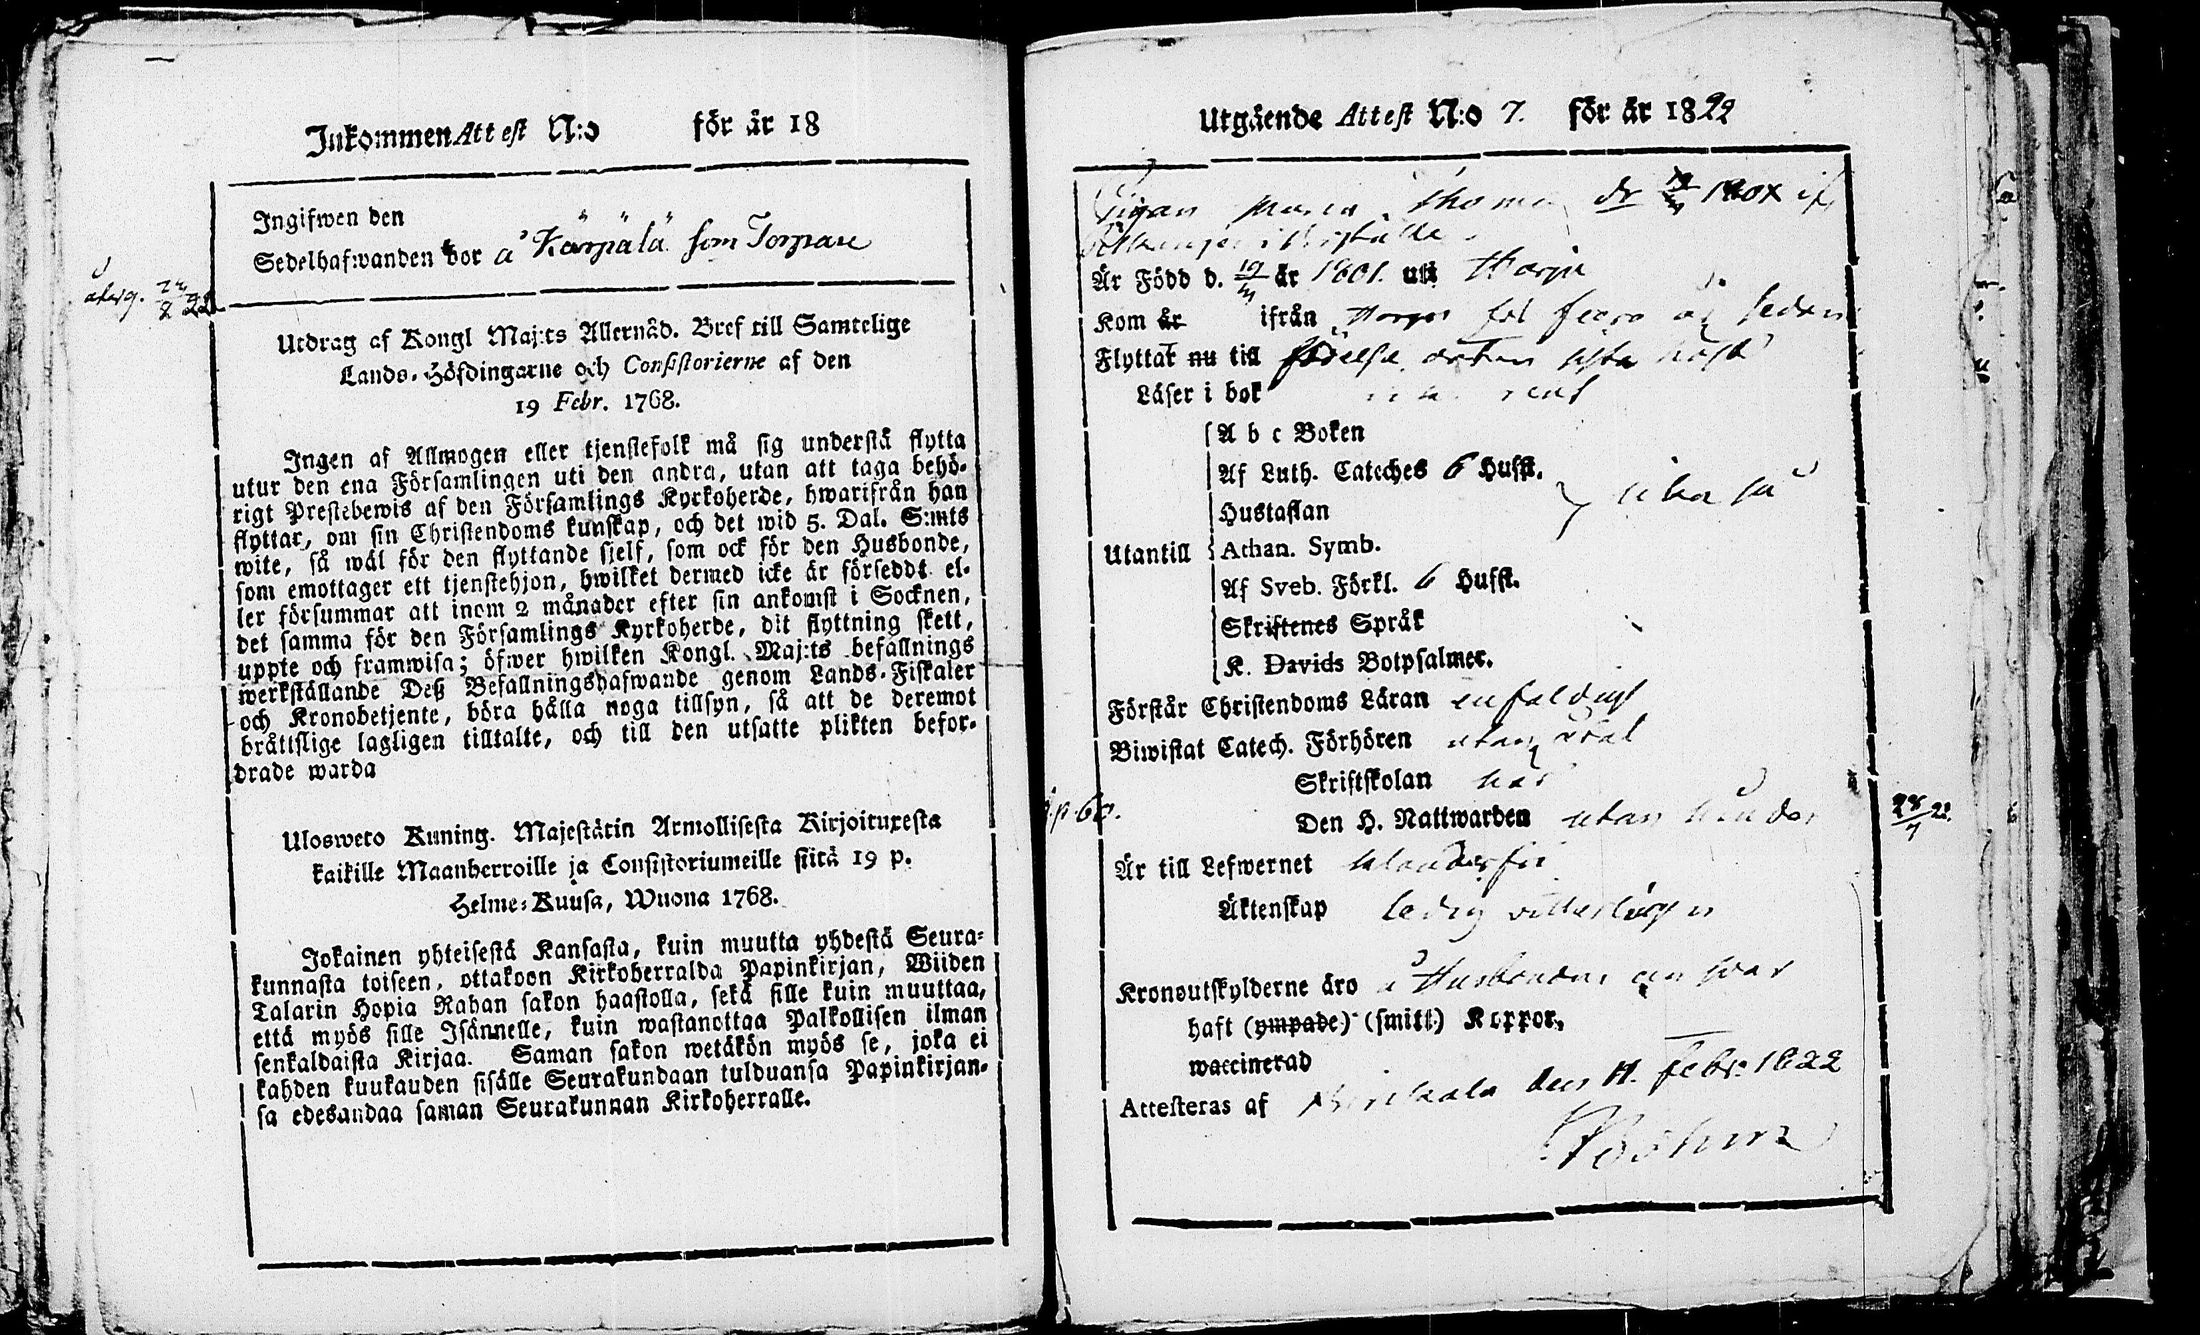 Inkommen Attest N:o för år 18
Ingifwen den
Sedelhafwanden bor å Kärpälä som Torpare
Utdrag af Kongl Maj:ts Allernåd. Bref till Samtelige
Lands-Höfdingarne och Consistorierne af den
19 Febr. 1768.
Ingen af Allmogen eller tjenstefolk må sig understå flytta
utur den ena Församlingen uti den andra, utan att taga behö-
rigt Prestebewis af den Församlings Kyrkoherde, hwarifrån han
flyttar, om sin Christendoms kunskap, och det wid 5. Dal. S:mts
wite, så wäl för den flyttande sjelf, som ock för den Husbonde,
som emottager ett tjenstehjon, hwilket dermed icke är förseddt el-
ler försummar att inom 2 månader efter sin ankomst i Socknen,
det samma för den Församlings Kyrkoherde, dit flyttning skett,
uppte och framwisa; öfwer hwilken Kongl. Maj:ts befallnings
werkställande Deß Befallningshafwande genom Lands-Fiskaler
och Kronobetjente, böra hålla noga tillsyn, så att de deremot
bråttslige lagligen tilltalte, och till den utsatte plikten befor-
drade warda
Ulosweto Kuning. Majestätin Armollisesta Kirjoituxesta
kaikille Maanherroille ja Consistoriumeille siitä 19 p.
Helme-Kuusa, Wuona 1768.
Jokainen yhteisestä Kansasta, kuin muutta yhdestä Seura-
kunnasta toiseen, ottakoon Kirkoherralda Papinkirjan, Wiiden
Talarin Hopia Rahan sakon haastolla, sekä sille kuin muuttaa,
että myös sille Isännelle, kuin wastanottaa Palkollisen ilman
senkaldaista Kirjaa. Saman sakon wetäkön myös se, joka ei
kahden kuukauden sisälle Seurakundaan tulduansa Papinkirjan-
sa edesandaa saman Seurakunnan Kirkoherralle.
Utgående Attest N:o 7. för år 1822
Pigan Maria
Är Född d. 19 år 1801. uti
Kom år ifrån
Flyttat nu till
Läser i bok rent
A b c Boken
Af Luth. Cateches 6 Hufst.
Hustaflan
lika så
Utantill Athan. Symb.
Af Sveb. Förkl. 6 Hufst.
Skriftenes Språk
K. Davids Botpsalmer.
Förstår Christendoms Läran enfaldigt
Biwistat Catech. Förhören utan
Skriftskolan
p. 60.
Den H. Nattwarden utan hinder
Är till Lefwernet
Äktenskap ledig
Kronoutskylderne äro å Husbondens ansvar
haft (ympade) (smitt) Koppor,
waccinerad
Attesteras af den 11. Febr. 1822